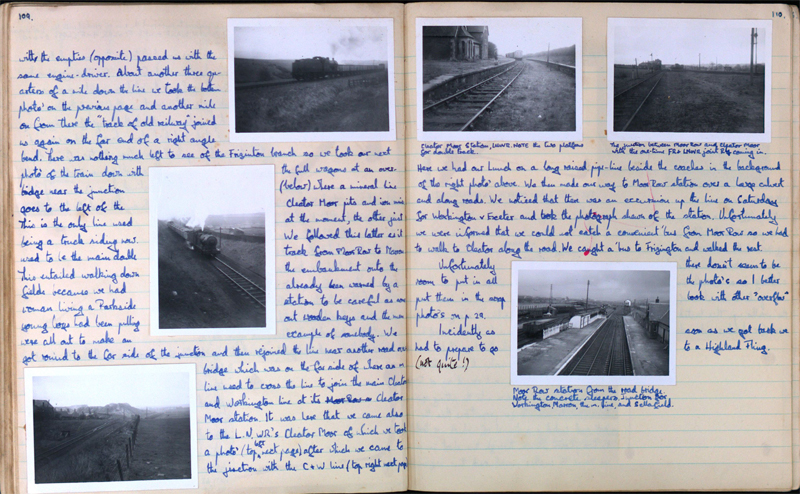 109.
with the empties (opposite) passed us with the
same engine-driver. About another three qu-
arters of a mile down the line we took the bottom
photo' on the previous page and another mile
on from there the "track of old railway" joined
us again on the far end of a right angle
bend. There was nothing much left to see of the Frizington branch so we took our next
photo of the train down with the full wagons at an over-
bridge near the junction (below) where a mineral line
goes to the left of the Cleator Moor pits and iron mine
This is the only line used at the moment, the other joint
being a truck siding now. We followed this latter as it
used to be the main double track from Moor Row to Marron
This entailed walking down the embankment onto the
fields because we had already been warned by a
woman living a Parkside station to be careful as
young boys had been pulling out wooden keys and the men
were all out to make an example of somebody. We
got round to the far side of the junction and then rejoined the line near another road over
bridge which was on the far side of where
line used to cross the line to join the main Cleator
and Workington line at its Cleator
Moor station. It was here that we came also
to the L.N.W.R's Cleator Moor of which we took
a photo' (top left next page) after which we came to
the junction with the C & W line (top right next page)
110.
Cleator Moor Station, LNWR. NOTE the two platforms
for double track.
The junction between Moor Row and Cleator Moor
with the one-time FR & LNWR joint Rly coming in.
Here we had our lunch on a long raised pipe-line beside the coaches in the background
of the right photo' above. We then made our way to Moor Row station over a large culvert
and along roads. We noticed that there was an excursion up the line on Saturdays
for Workington v Exeter and took the photograph shown of the station. Unfortunately
we were informed that we could not catch a convenient 'bus from Moor Row so we had
to walk to Cleator along the road. We caught a 'bus to Frizington and walked the rest.
Unfortunately there doesn't seem to be
room to put in all the photo's so I better
put them in the scrap book with other "overflow"
photo's on p 29.
Incidently as soon as we got back we
had to prepare to go to a Highland Fling.
(not quite!)
Moor Row station from the road bridge.
Note the concrete sleepers, junction for
Workington Marron, the m. line, and Sellafield.